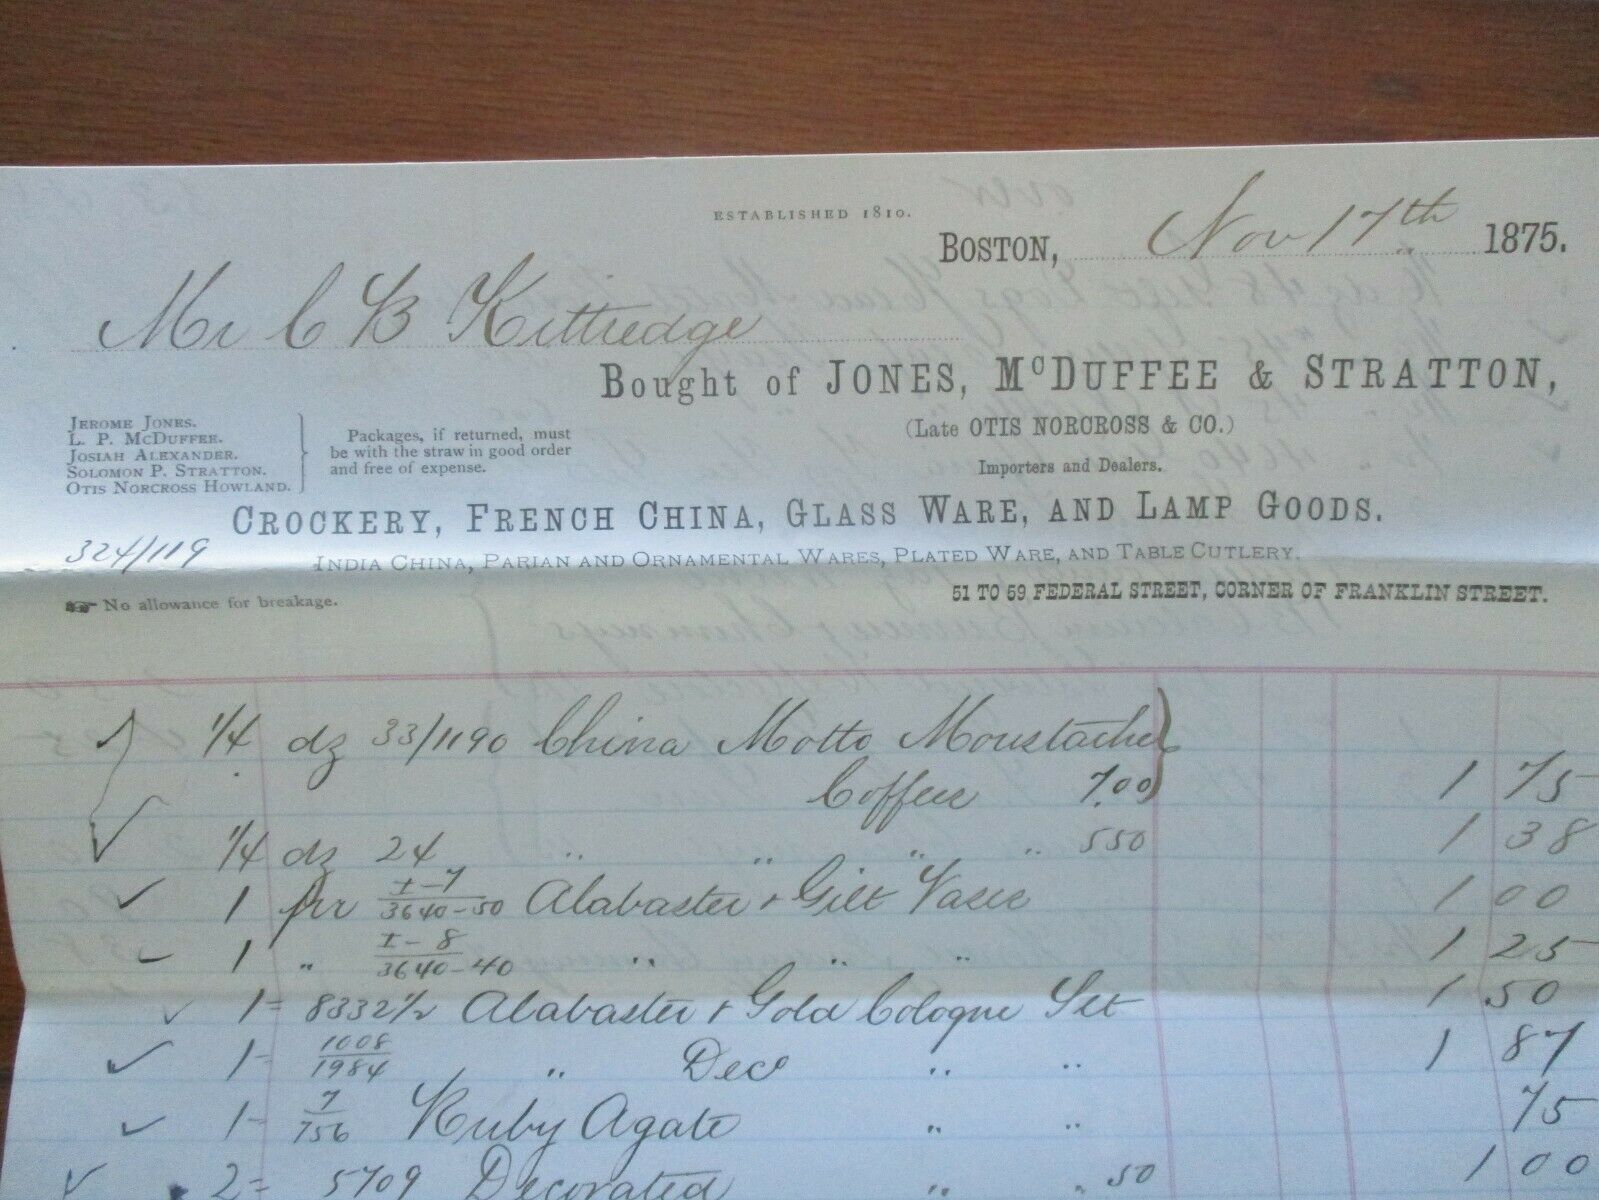 ESTABLISHED 1810.
BOSTON, Nov 17th 1875.
Mr C B Kittredge
Bought of JONES, McDUFFEE & STRATTON,
(Late OTIS NORCROSS & CO.)
Importers and Dealers.
JEROME JONES.
L. P. McDUFFEE.
JOSIAH ALEXANDER.
SOLOMON P. STRATTON.
OTIS NORCROSS HOWLAND.
Packages, if returned, must
be with the straw in good order
and free of expense.
CROCKERY, FRENCH CHINA, GLASS WARE, AND LAMP GOODS.
324/119
INDIA CHINA, PARIAN AND ORNAMENTAL WARES, PLATED WARE, AND TABLE CUTLERY.
No allowance for breakage.
51 TO 59 FEDERAL STREET, CORNER OF FRANKLIN STREET.
1/4 dz 33/1190 China Motto Moustache
Coffees 7.00 1 75
1/4 dz 24 " " " " 5 50 1 38
1 pr I-7/3640-50 Alabaster + Gilt Vases 1 00
1 " I-8/3640-40 " " " 1 25
1- 8332 1/2 Alabaster + Gold Cologne Set 1 50
1- 1008/1984 " Decd " " 1 87
1- 7/756 Ruby Agate " " 75
2= 5709 Decorated " " .50 1 00